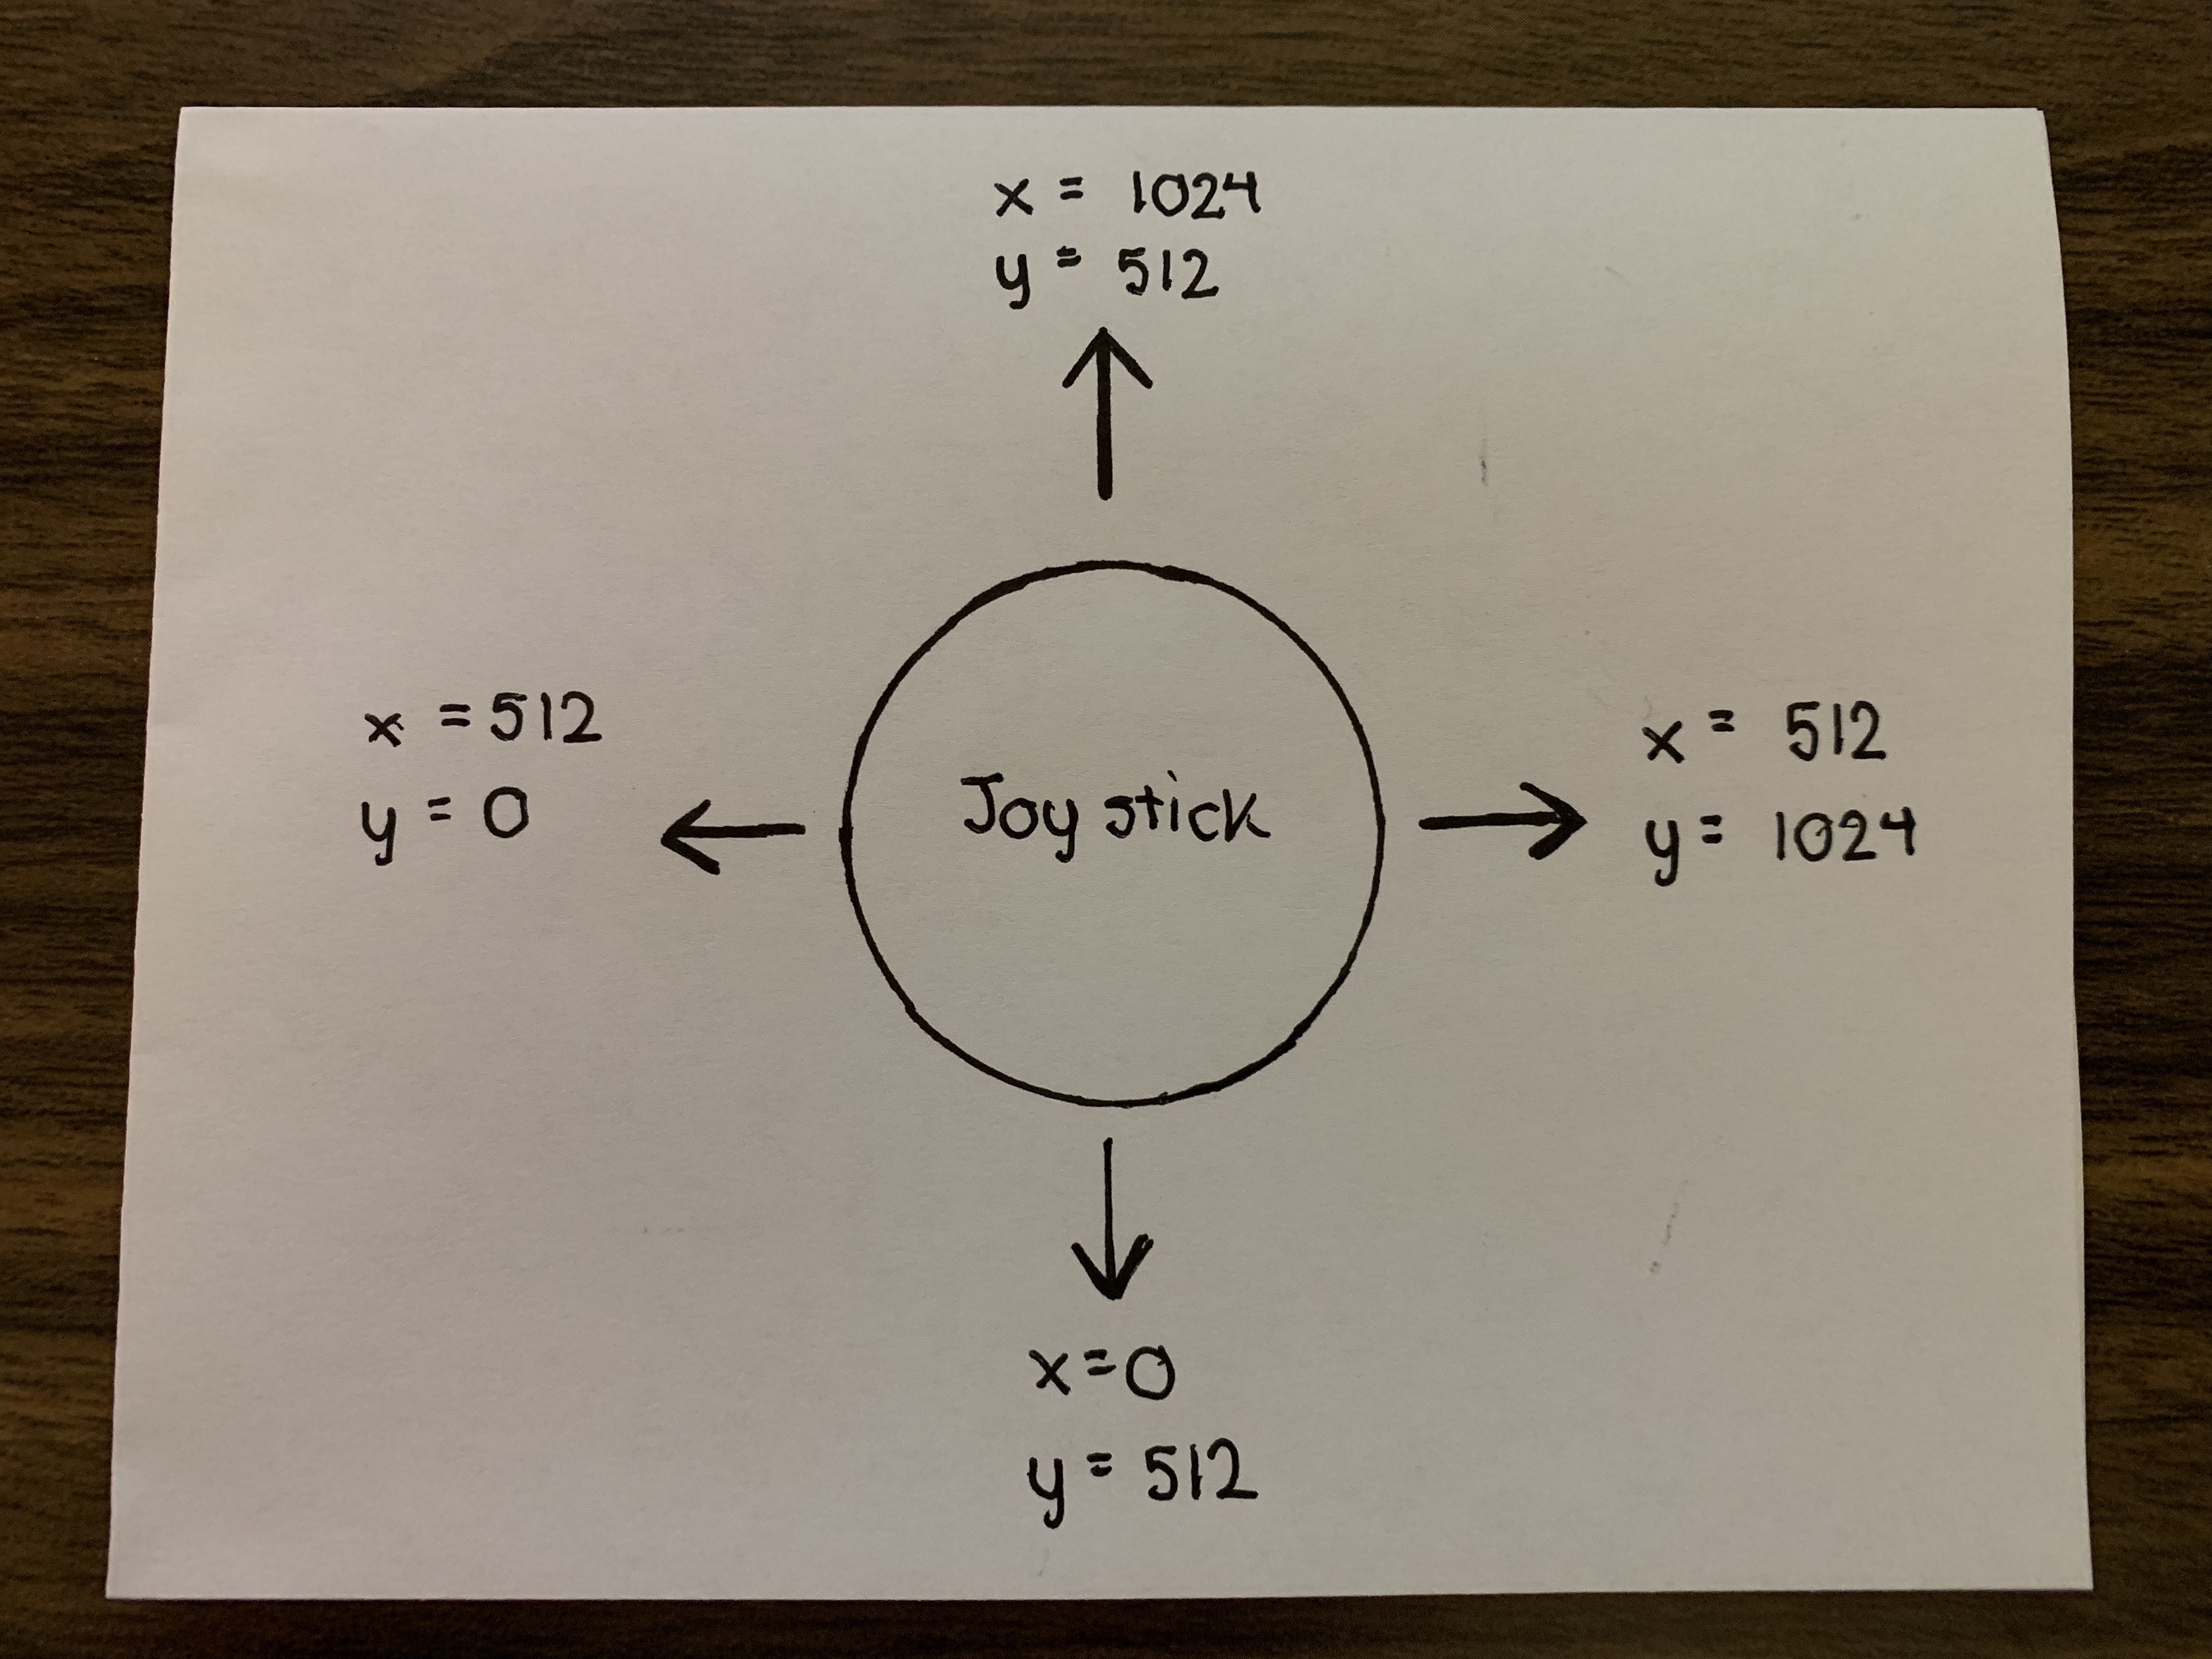 x = 1024
y = 512
x = 512
y = 0
Joy stick
x = 512
y = 1024
x = 0
y = 512